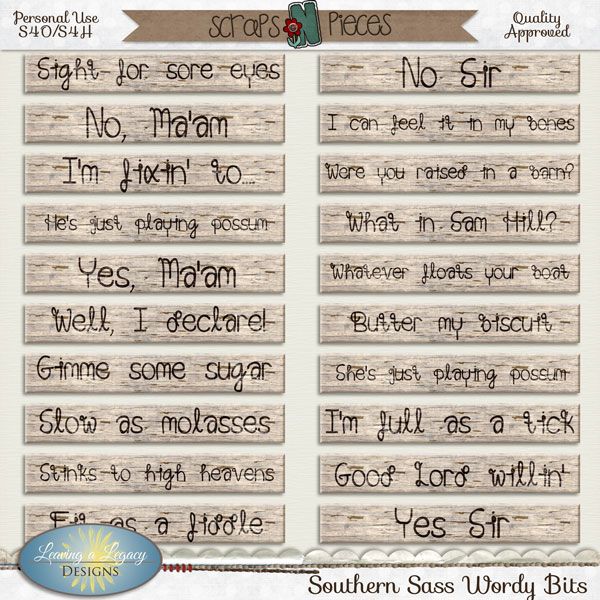 Personal Use
S4O/S4H
SCRAPS N PIECES
Quality
Approved
Sight for sore eyes
No, Ma'am
I'm fixin' to....
He's just playing possum
Yes, Ma'am
Well, I declare!
Gimme some sugar
Slow as molasses
Stinks to high heavens
Fit as a fiddle
No Sir
I can feel it in my bones
Were you raised in a barn?
What in Sam Hill?
Whatever floats your boat
Butter my biscuit
She's just playing possum
I'm full as a tick
Good Lord willin'
Yes Sir
Leaving a Legacy
DESIGNS
Southern Sass Wordy Bits